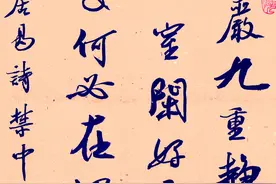 嚴九重靜
室閑好
何必在
居易詩禁中